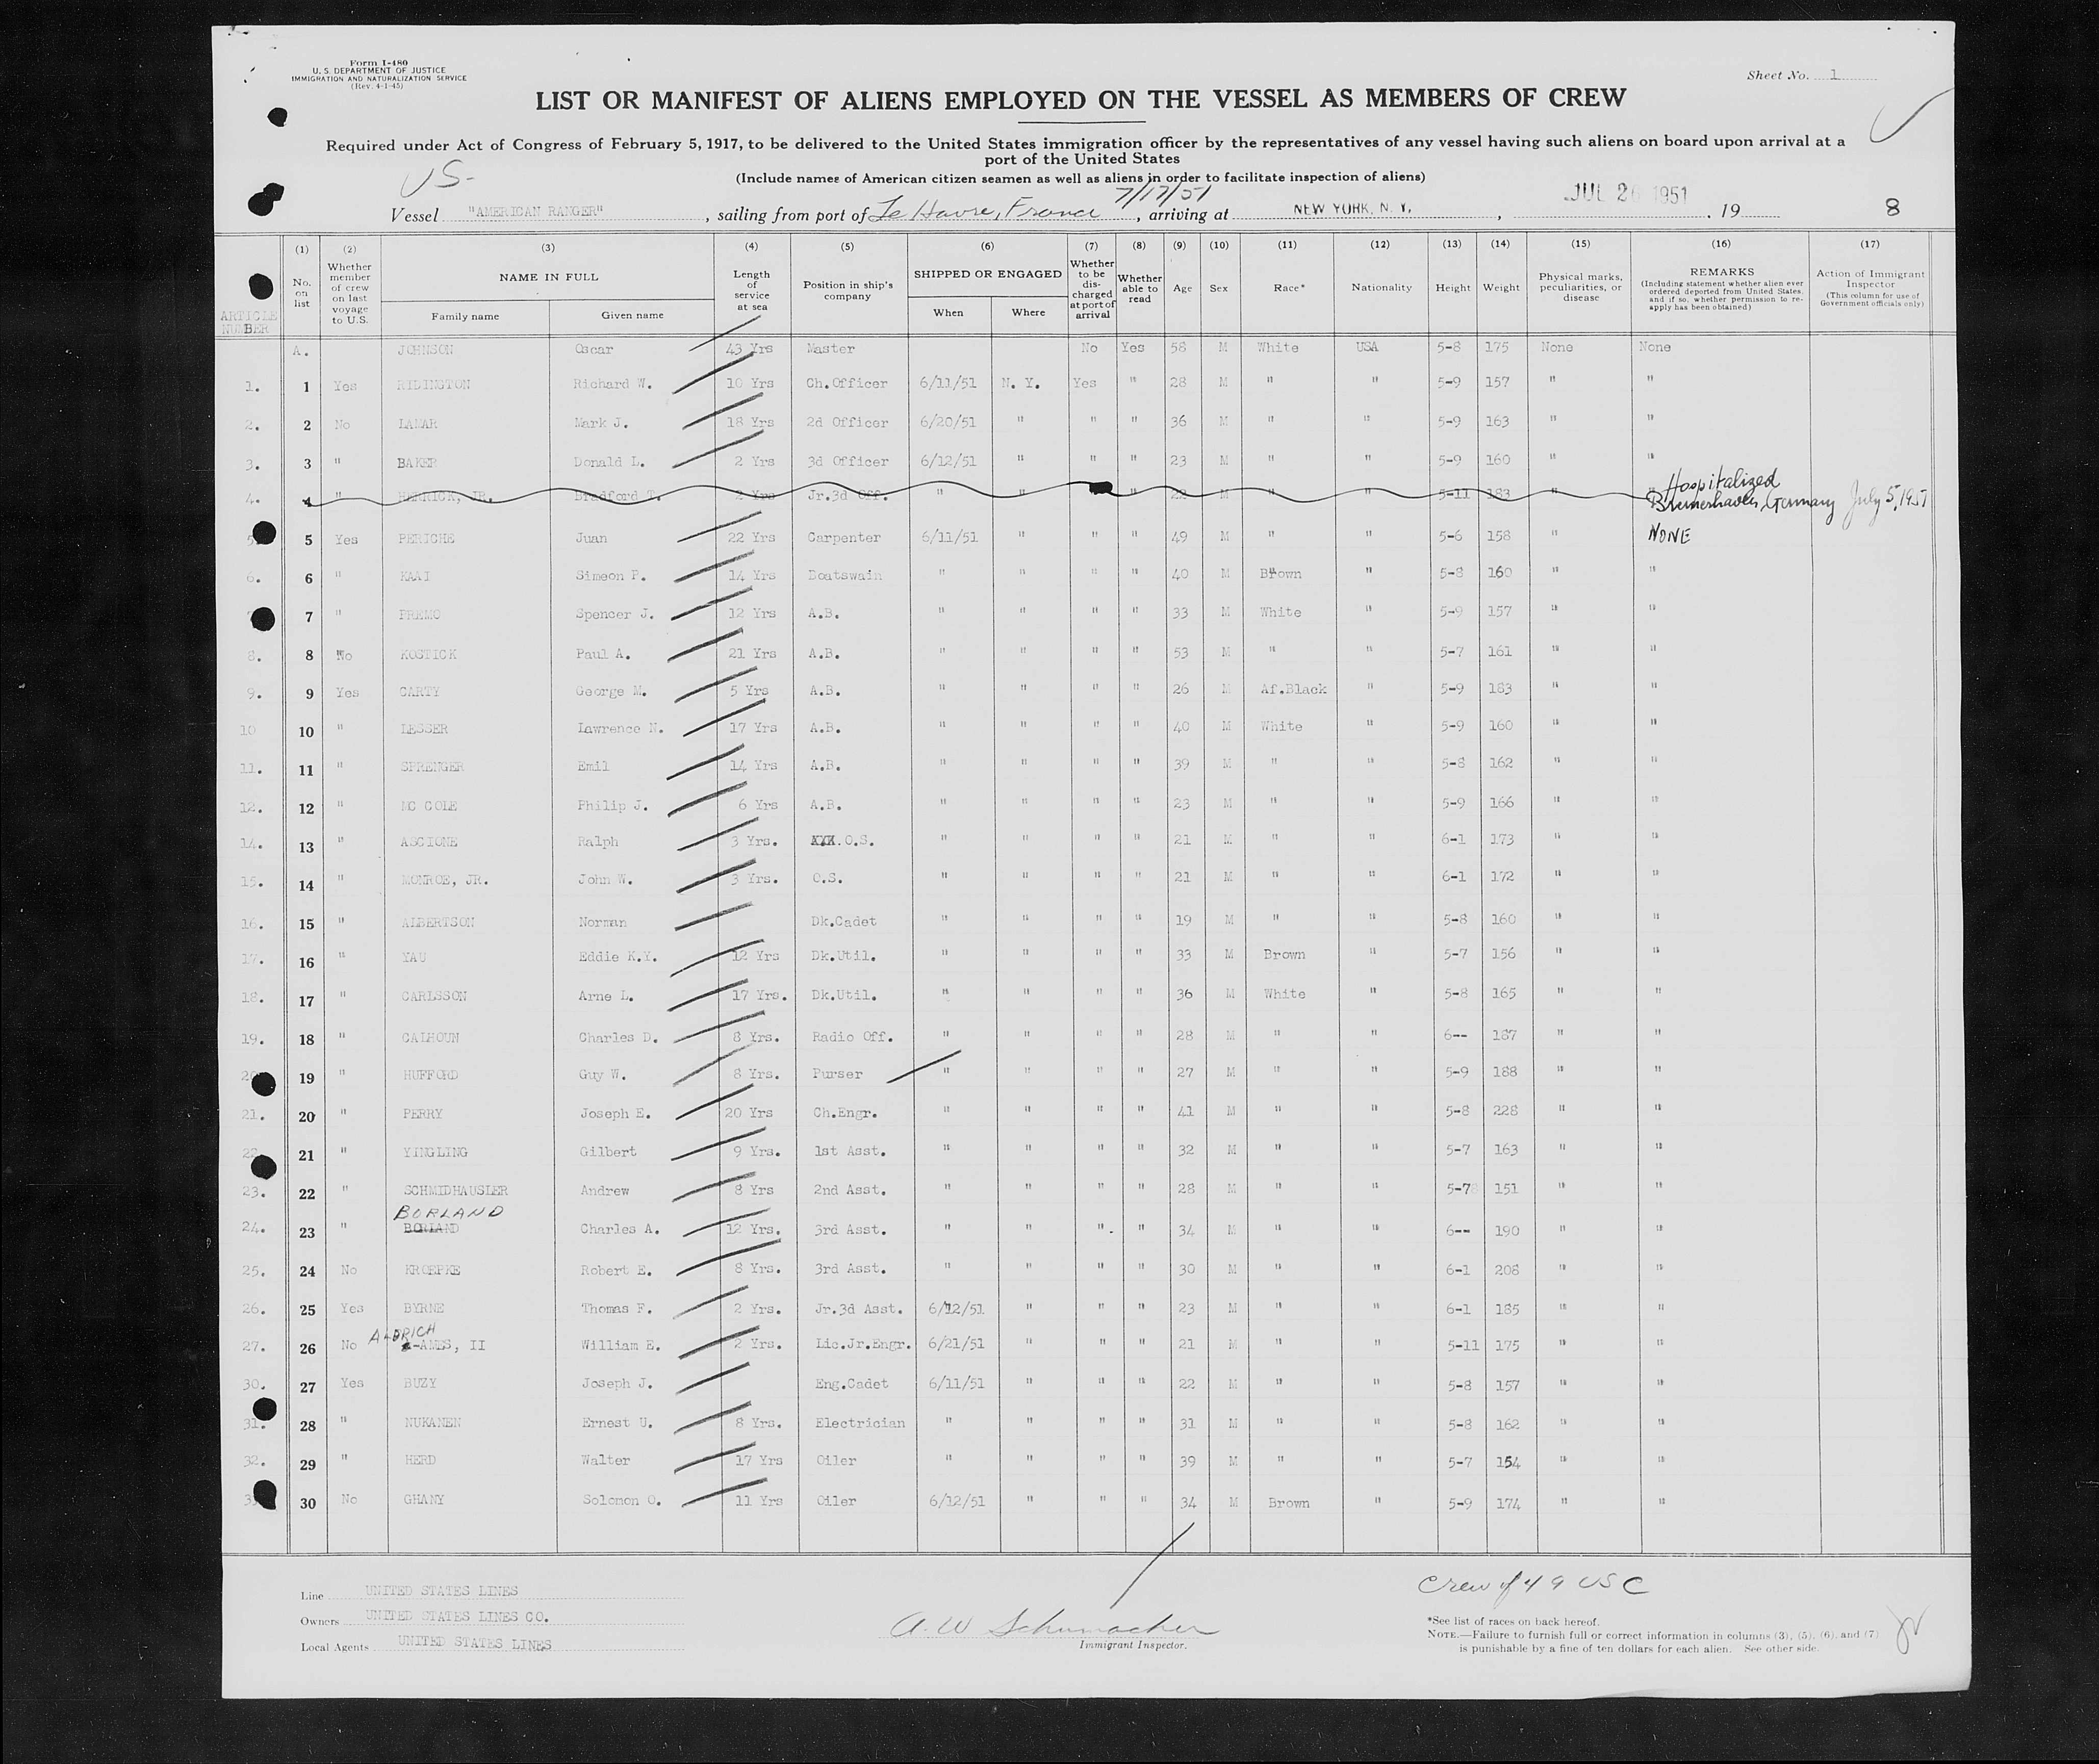 Form I-480
U. S. DEPARTMENT OF JUSTICE
IMMIGRATION AND NATURALIZATION SERVICE
(Rev. 4-1-45)
Sheet No. 1
LIST OR MANIFEST OF ALIENS EMPLOYED ON THE VESSEL AS MEMBERS OF CREW
Required under Act of Congress of February 5, 1917, to be delivered to the United States immigration officer by the representatives of any vessel having such aliens on board upon arrival at a
port of the United States
(Include names of American citizen seamen as well as aliens in order to facilitate inspection of aliens)
US-
7/17/51
Vessel "AMERICAN RANGER", sailing from port of Le Havre, France, arriving at NEW YORK, N. Y., JUL 26 1951, 19 8
(1) (2) (3) (4) (5) (6) (7) (8) (9) (10) (11) (12) (13) (14) (15) (16) (17)
ARTICLE NUMBER
No. on list
Whether member of crew on last voyage to U.S.
NAME IN FULL
Family name
Given name
Length of service at sea
Position in ship's company
SHIPPED OR ENGAGED
When
Where
Whether to be discharged at port of arrival
Whether able to read
Age
Sex
Race*
Nationality
Height
Weight
Physical marks, peculiarities, or disease
REMARKS
(Including statement whether alien ever ordered deported from United States, and if so, whether permission to re-apply has been obtained)
Action of Immigrant Inspector
(This column for use of Government officials only)
A. JOHNSON Oscar 43 Yrs Master No Yes 58 M White USA 5-8 175 None None
1. 1 Yes RIDINGTON Richard W. 10 Yrs Ch.Officer 6/11/51 N. Y. Yes " 28 M " " 5-9 157 " "
2. 2 No LAMAR Mark J. 18 Yrs 2d Officer 6/20/51 " " " 36 M " " 5-9 163 " "
3. 3 " BAKER Donald L. 2 Yrs 3d Officer 6/12/51 " " " 23 M " " 5-9 160 " "
4. 4 " HERRICK, JR. Bradford T. 2 Yrs Jr.3d Off. " " " 22 M " 5-11 183 " " Hospitalized
Bremerhaven, Germany July 5, 1951
5. 5 Yes PERICHE Juan 22 Yrs Carpenter 6/11/51 " " " 49 M " " 5-6 158 " NONE
6. 6 " KAAI Simeon P. 14 Yrs Boatswain " " " " 40 M Brown " 5-8 160 " "
7 " FREMO Spencer J. 12 Yrs A.B. " " " " 33 M White " 5-9 157 " "
8. 8 No KOSTICK Paul A. 21 Yrs A.B. " " " " 53 M " " 5-7 161 " "
9. 9 Yes CARTY George M. 5 Yrs A.B. " " " " 26 M Af.Black " 5-9 183 " "
10 10 " LESSER Lawrence N. 17 Yrs A.B. " " " " 40 M White " 5-9 160 " "
11. 11 " SPRENGER Emil 14 Yrs A.B. " " " " 39 M " " 5-8 162 " "
12. 12 " MC COLE Philip J. 6 Yrs A.B. " " " " 23 M " " 5-9 166 " "
14. 13 " ASCIONE Ralph 3 Yrs. XXX.O.S. " " " " 21 M " " 6-1 173 " "
15. 14 " MONROE, JR. John W. 3 Yrs. O.S. " " " " 21 M " " 6-1 172 " "
16. 15 " ALBERTSON Norman Dk.Cadet " " " " 19 M " " 5-8 160 " "
17. 16 " YAU Eddie K.Y. 12 Yrs Dk.Util. " " " " 33 M Brown " 5-7 156 " "
18. 17 " CARLSSON Arne L. 17 Yrs. Dk.Util. " " " " 36 M White " 5-8 165 " "
19. 18 " CALHOUN Charles D. 8 Yrs. Radio Off. " " " " 28 M " " 6-- 187 " "
20 19 " HUFFORD Guy W. 8 Yrs. Purser " " " " 27 M " " 5-9 188 " "
21. 20 " PERRY Joseph E. 20 Yrs Ch.Engr. " " " " 41 M " " 5-8 228 " "
22 21 " YINGLING Gilbert 9 Yrs. 1st Asst. " " " " 32 M " " 5-7 163 " "
23. 22 " SCHMIDHAUSLER Andrew 8 Yrs 2nd Asst. " " " " 28 M " " 5-7 151 " "
BORLAND
24. 23 " BORLAND Charles A. 12 Yrs. 3rd Asst. " " " " 34 M " " 6-- 190 " "
25. 24 No KROEPKE Robert E. 8 Yrs. 3rd Asst. " " " " 30 M " " 6-1 208 " "
26. 25 Yes BYRNE Thomas F. 2 Yrs. Jr.3d Asst. 6/12/51 " " " 23 M " " 6-1 185 " "
ALDRICH
27. 26 No AMES, II William E. 2 Yrs. Lic.Jr.Engr. 6/21/51 " " " 21 M " " 5-11 175 " "
30. 27 Yes BUZY Joseph J. Eng.Cadet 6/11/51 " " " 22 M " " 5-8 157 " "
31. 28 " NUKANEN Ernest U. 8 Yrs. Electrician " " " " 31 M " " 5-8 162 " "
32. 29 " HERD Walter 17 Yrs Oiler " " " " 39 M " " 5-7 154 " "
30 No GHANY Solomon O. 11 Yrs Oiler 6/12/51 " " " 34 M Brown " 5-9 174 " "
Line UNITED STATES LINES
Owners UNITED STATES LINES CO.
Local Agents UNITED STATES LINES
A. W Schumacher
Immigrant Inspector.
Crew of 49 USC
*See list of races on back hereof.
NOTE.—Failure to furnish full or correct information in columns (3), (5), (6), and (7)
is punishable by a fine of ten dollars for each alien. See other side.